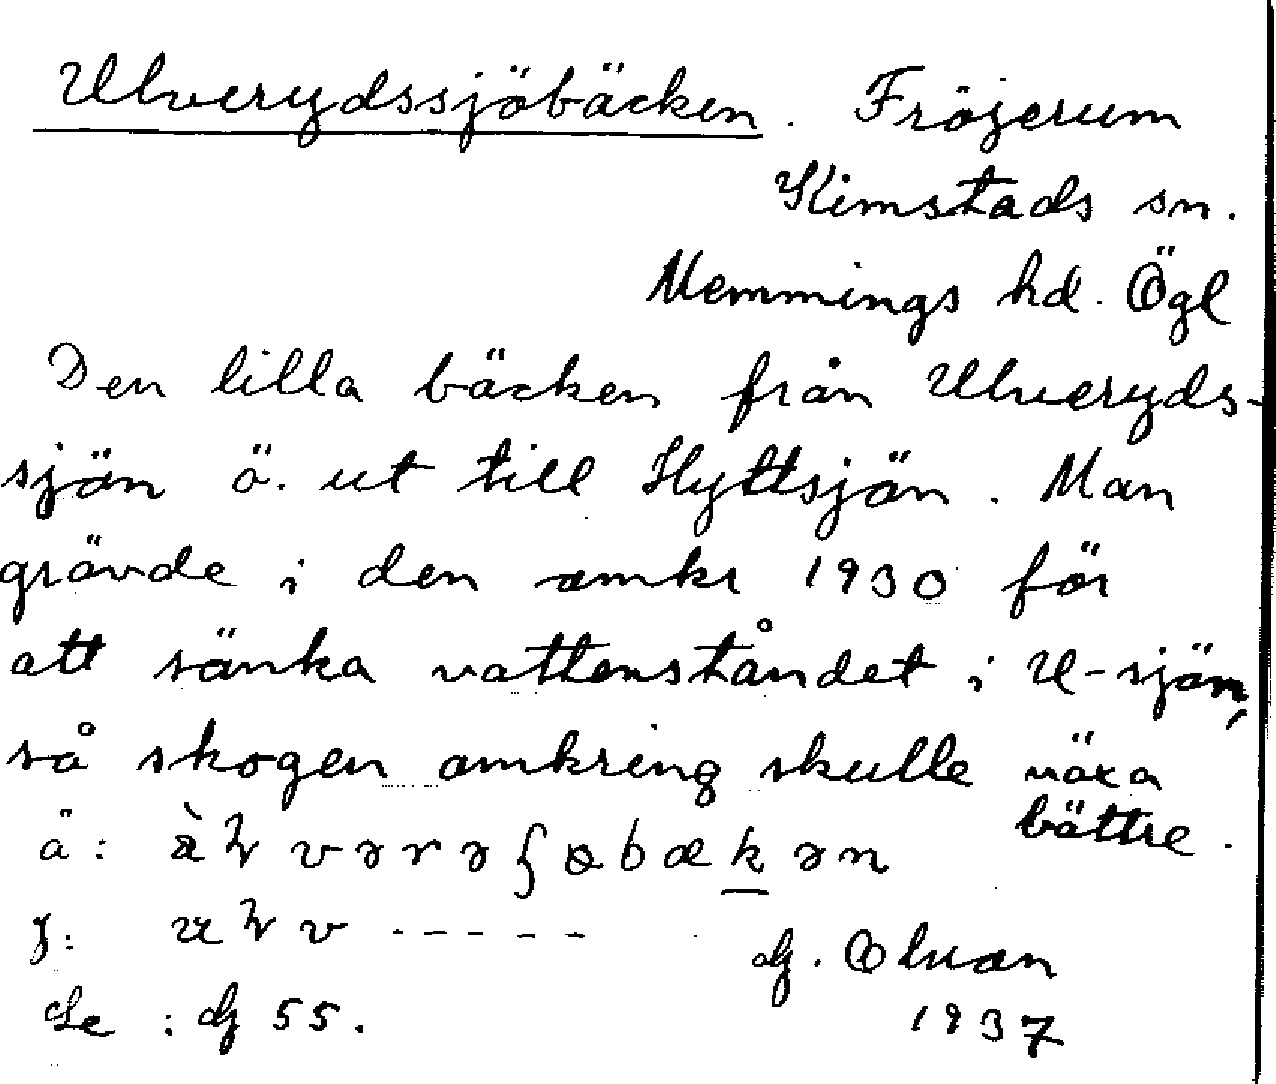 Ulverydssjöbäcken. Fröjerum
Kimstads sn.
Memmings hd. Ögl
Den lilla bäcken från Ulveryds-
sjön ö. ut till Hyttsjön. Man
grävde i den omkr 1930 för
att sänka vattenståndet i U-sjön,
så skogen omkring skulle växa
bättre.
ä:
j:
G. Olson
Le : G 55.
1937